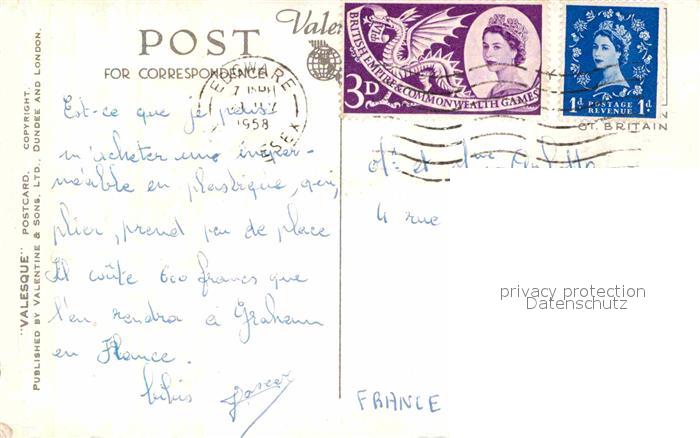 Valen
POST
FOR CORRESPONDENCE
"VALESQUE" POSTCARD. COPYRIGHT.
PUBLISHED BY VALENTINE & SONS, LTD., DUNDEE AND LONDON.
EDGWARE
1958
BRITISH EMPIRE & COMMONWEALTH GAMES
3D
1D POSTAGE REVENUE 1D
GT. BRITAIN
Est-ce que je peux
m'acheter une imper-
méable en plastique, qui,
plier, prend peu de place
Il coûte 600 francs que
l'on rendra à Graham
en France.
bibis
Mr et Mme
4 rue
privacy protection
Datenschutz
FRANCE